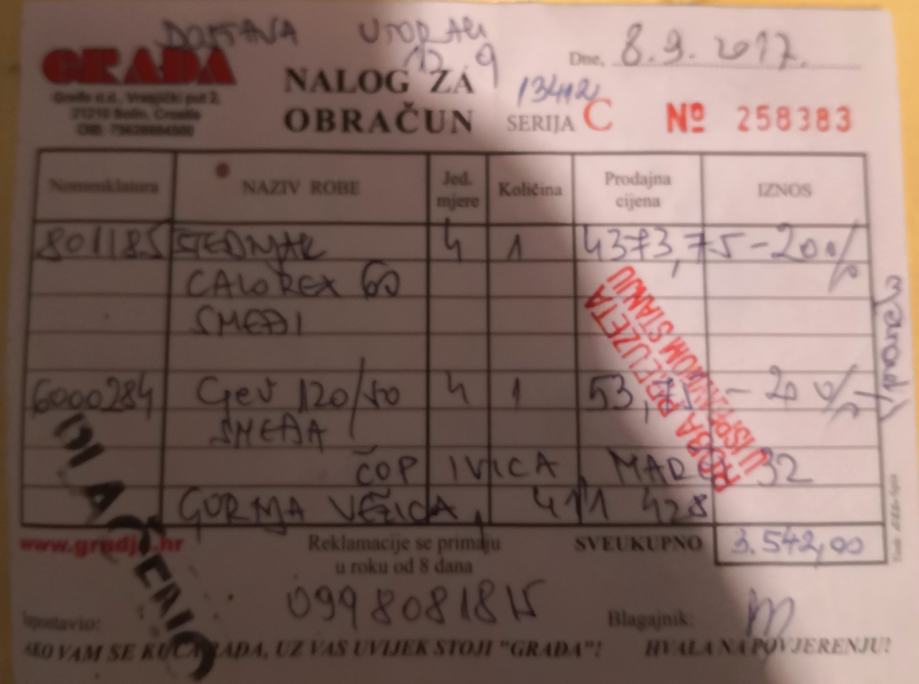 DOSTAVA UTORAK
12.9
GRAĐA
Građa d.d., Vranjički put 2,
21210 Solin, Croatia
Dne, 8.9.2017.
NALOG ZA
OBRAČUN
13412
SERIJA C
№ 258383
Nomenklatura NAZIV ROBE Jed. mjere Količina Prodajna cijena IZNOS
801185 ŠTEDNJAK 4 1 4373,75 -20%
CALOREX 60
SMEĐI
6000284 Cev 120/50 4 1 53,75 -20%
SMEĐA
ČOP IVICA, 32
GORNJA VEŽICA, 411 428
ROBA PREUZETA
U ISPRAVNOM STANJU
PLAĆENO
www.gradja.hr
Reklamacije se primaju
u roku od 8 dana
SVEUKUPNO 3.542,00
0998081815
Ispostavio:
Blagajnik:
AKO VAM SE KUĆA RADA, UZ VAS UVIJEK STOJI "GRAĐA"!
HVALA NA POVJERENJU!